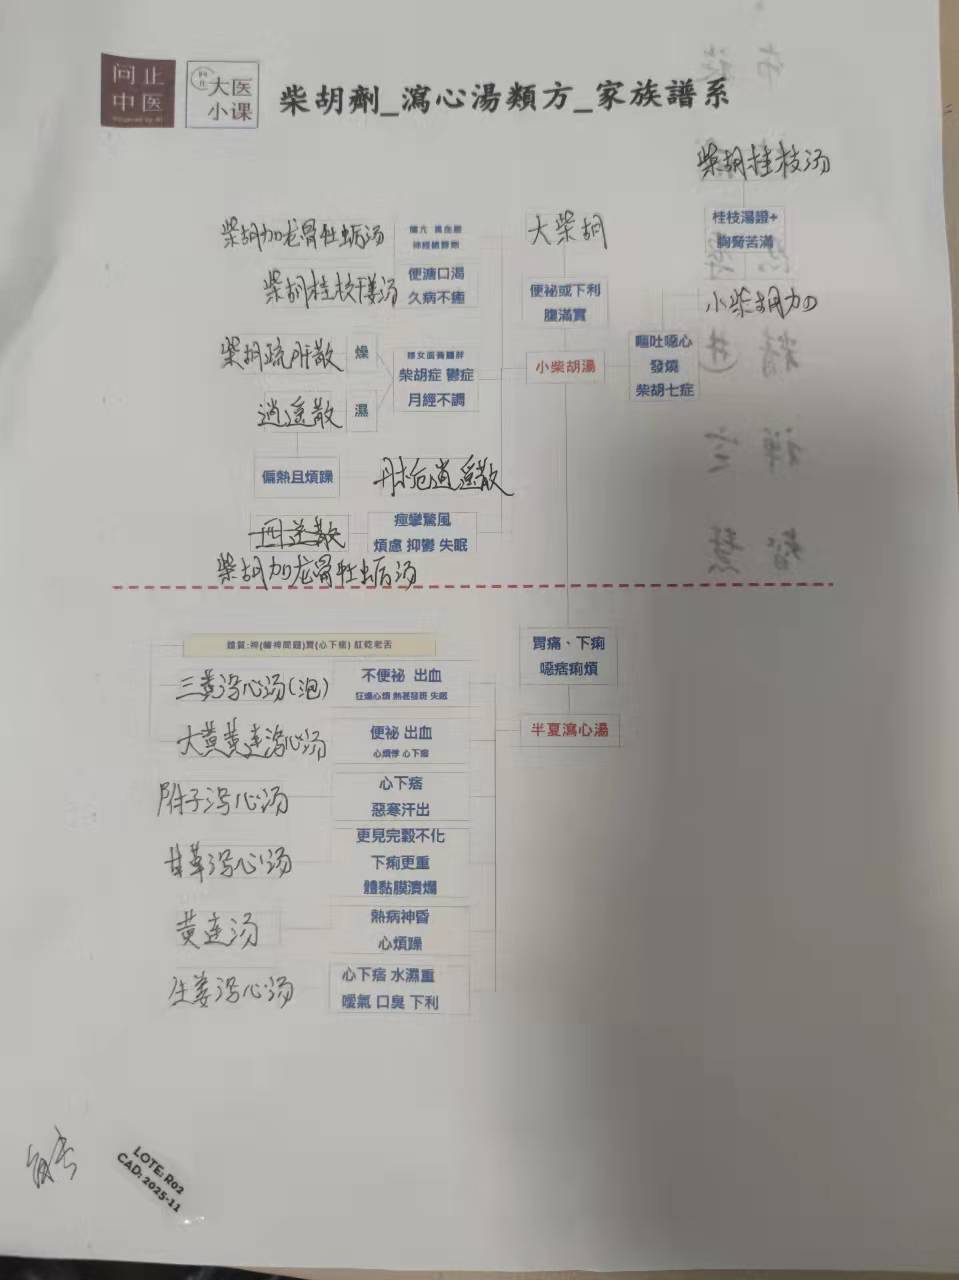 问止
中医
大医
小课
柴胡劑_瀉心湯類方_家族譜系
柴胡桂枝汤
桂枝湯證+
胸脅苦滿
柴胡加龙骨牡蛎汤
大柴胡
便溏口渴
久病不癒
柴胡桂枝干姜汤
便祕或下利
腹滿實
小柴胡加
嘔吐噁心
發燒
柴胡七症
小柴胡湯
柴胡疏肝散
燥
柴胡症 鬱症
月經不調
逍遥散
濕
偏熱且煩躁
丹栀逍遥散
四逆散
痙攣驚風
煩慮 抑鬱 失眠
柴胡加龙骨牡蛎汤
胃痛、下痢
噁痞痢煩
半夏瀉心湯
三黄泻心汤(泡)
不便祕 出血
狂燥心煩 熱甚發斑 失眠
大黄黄连泻心汤
便祕 出血
心煩悸 心下痞
附子泻心汤
心下痞
惡寒汗出
甘草泻心汤
更見完穀不化
下痢更重
體黏膜潰爛
黄连汤
熱病神昏
心煩躁
生姜泻心汤
心下痞 水濕重
噯氣 口臭 下利
LOTE: R02
CAD: 2025-11